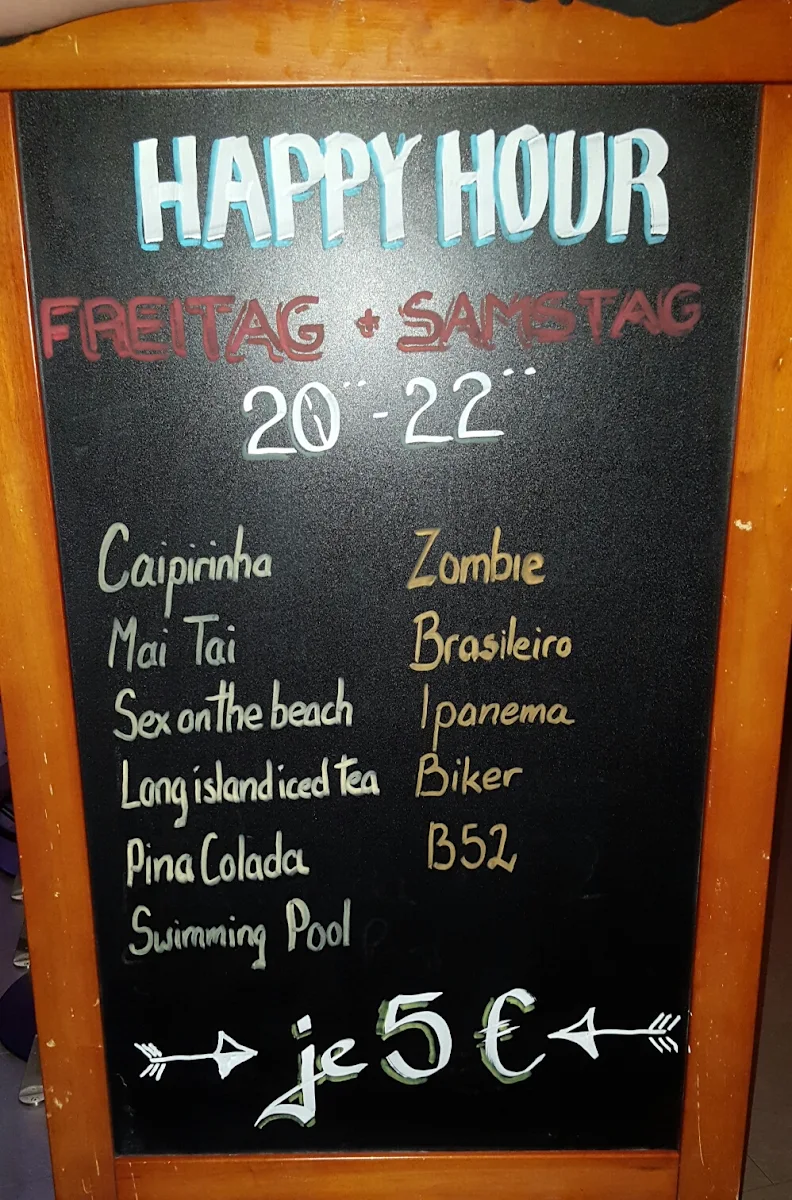 HAPPY HOUR
FREITAG + SAMSTAG
20¨ - 22¨
Caipirinha
Mai Tai
Sex on the beach
Long island iced tea
Pina Colada
Swimming Pool
Zombie
Brasileiro
Ipanema
Biker
B52
je 5 €